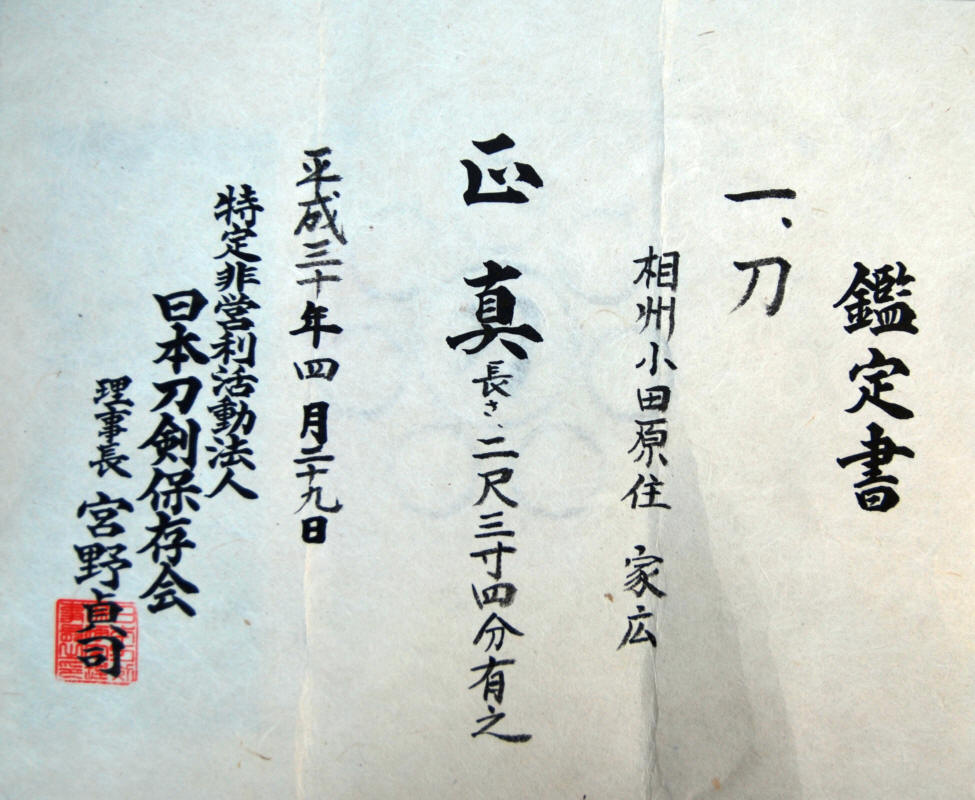 鑑定書
一、刀
相州小田原住 家広
正真 長さ、二尺三寸四分有之
平成三十年四月二十九日
特定非営利活動法人
日本刀剣保存会
理事長 宮野貞司